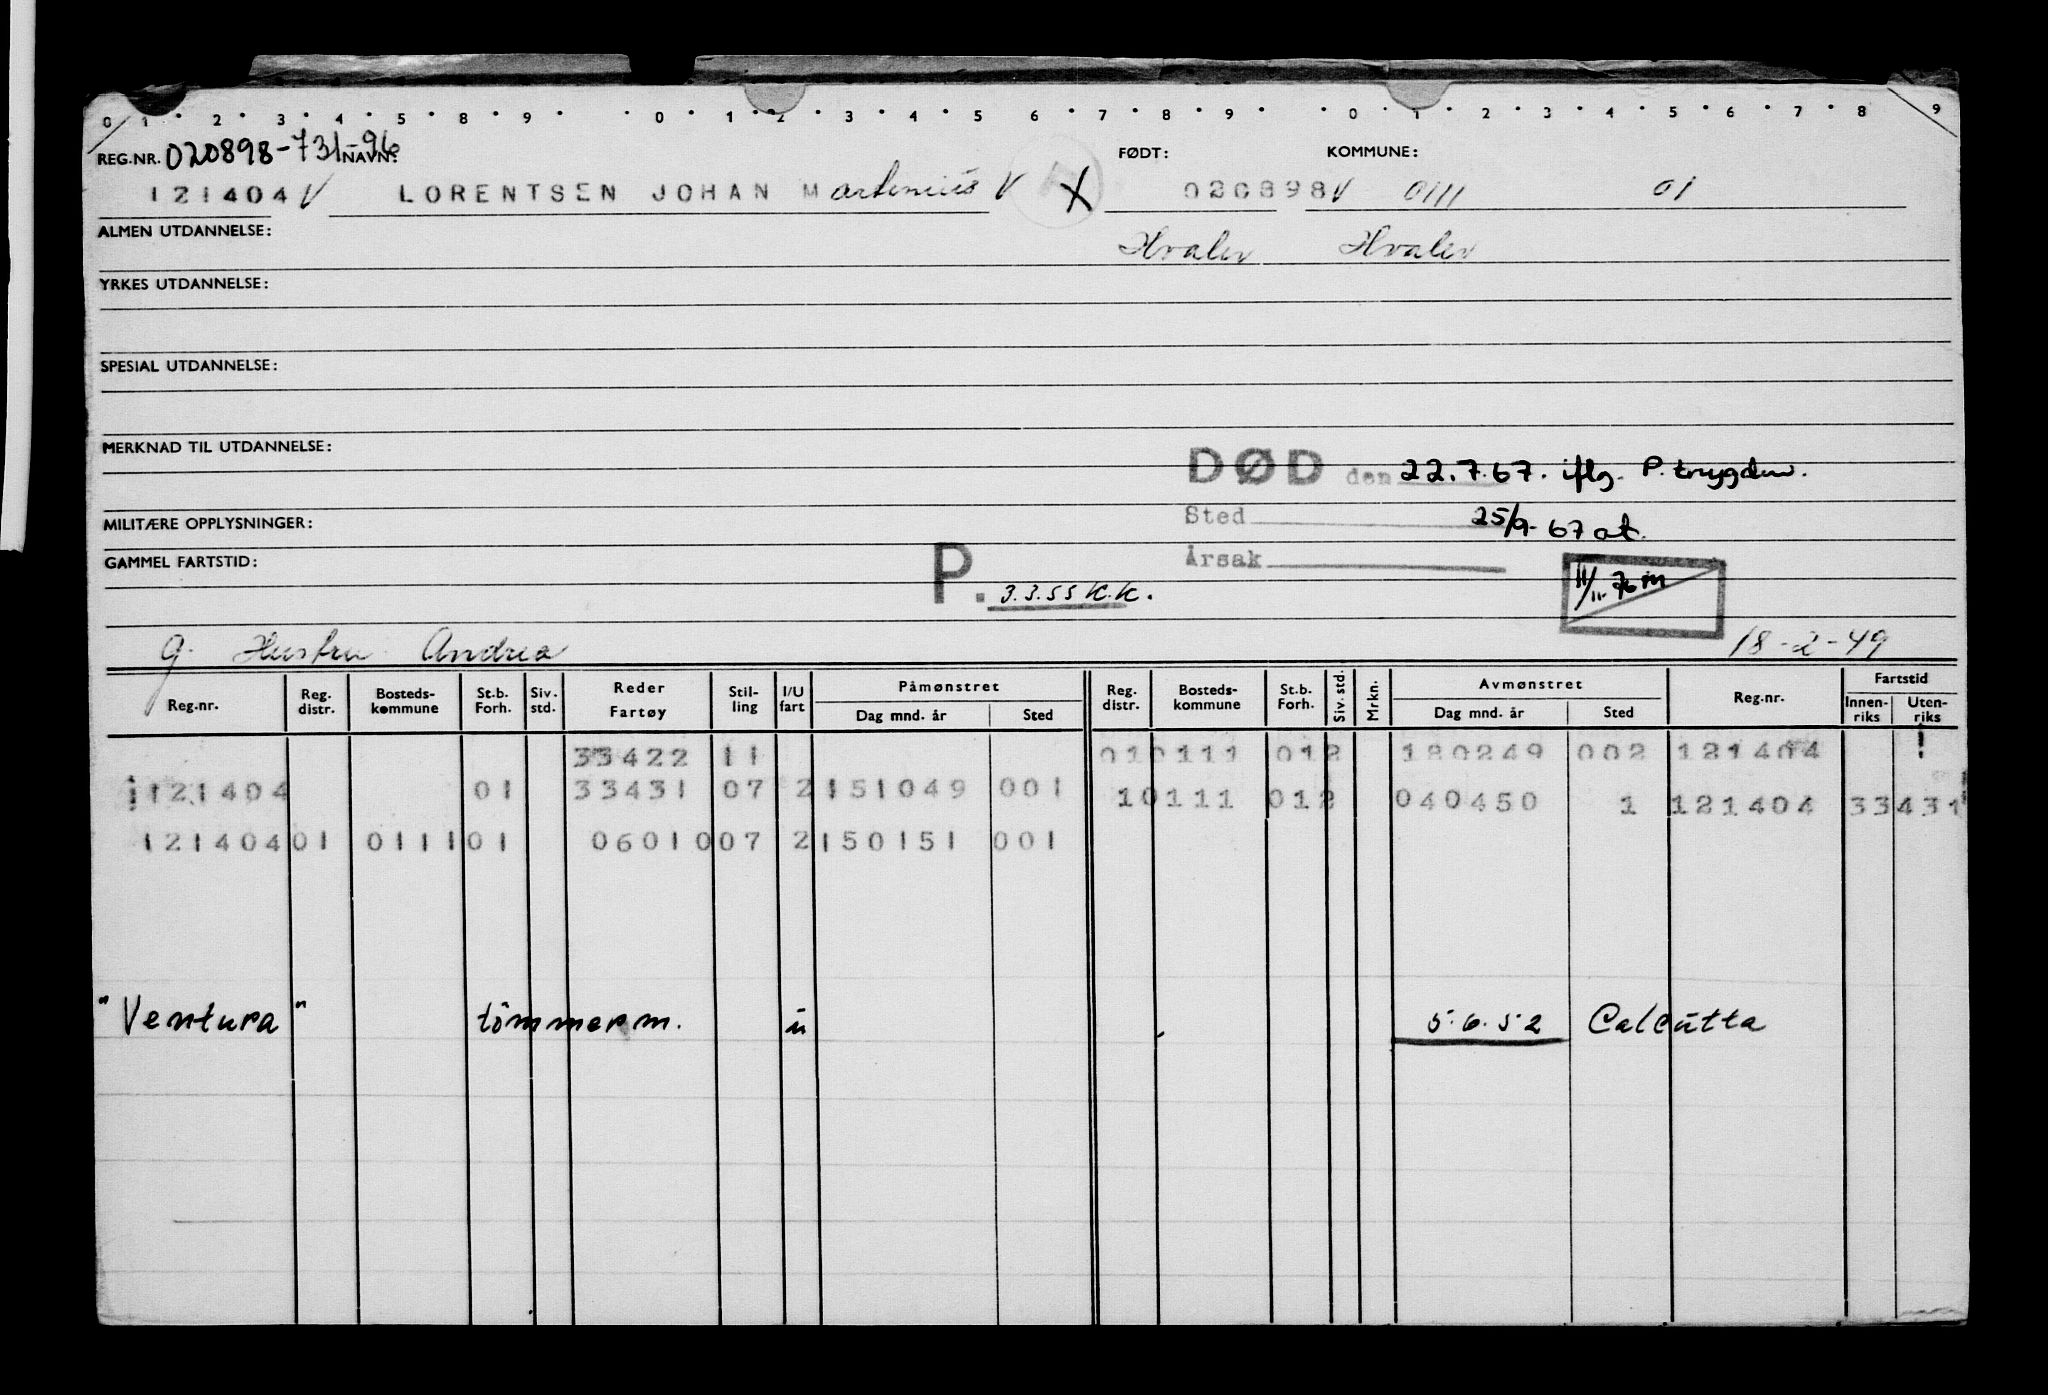 0 1 2 3 4 5 8 9 0 1 2 3 4 5 6 7 8 9 0 1 2 3 4 5 6 7 8 9
REG.NR. 020898-731-96 NAVN: FØDT: KOMMUNE:
121404 V LORENTSEN JOHAN Martenius V X 020898 V 0111 01
ALMEN UTDANNELSE: Hvaler Hvaler
YRKES UTDANNELSE:
SPESIAL UTDANNELSE:
MERKNAD TIL UTDANNELSE:
DØD den 22.7.67. iflg. P. trygden.
MILITÆRE OPPLYSNINGER: Sted 25/9-67 at.
GAMMEL FARTSTID: Årsak
P. 3.3.55 K.K. 11/11.76 m
g. Hustru Andrea 18-2-49
Reg.nr. Reg. distr. Bosteds- kommune St.b. Forh. Siv. std. Reder Fartøy Stil- ling I/U fart Påmønstret Dag mnd. år Sted Reg. distr. Bosteds- kommune St.b. Forh. Siv. std. Mrkn. Avmønstret Dag mnd. år Sted Reg.nr. Fartstid Innen- riks Uten- riks
33422 11 010111 012 180249 002 121404 !
121404 01 33431 07 2 151049 001 10111 012 040450 1 121404 33431
121404 01 0111 01 06010 07 2 150151 001
"Ventura" tömmerm. u 5.6.52 Calcutta